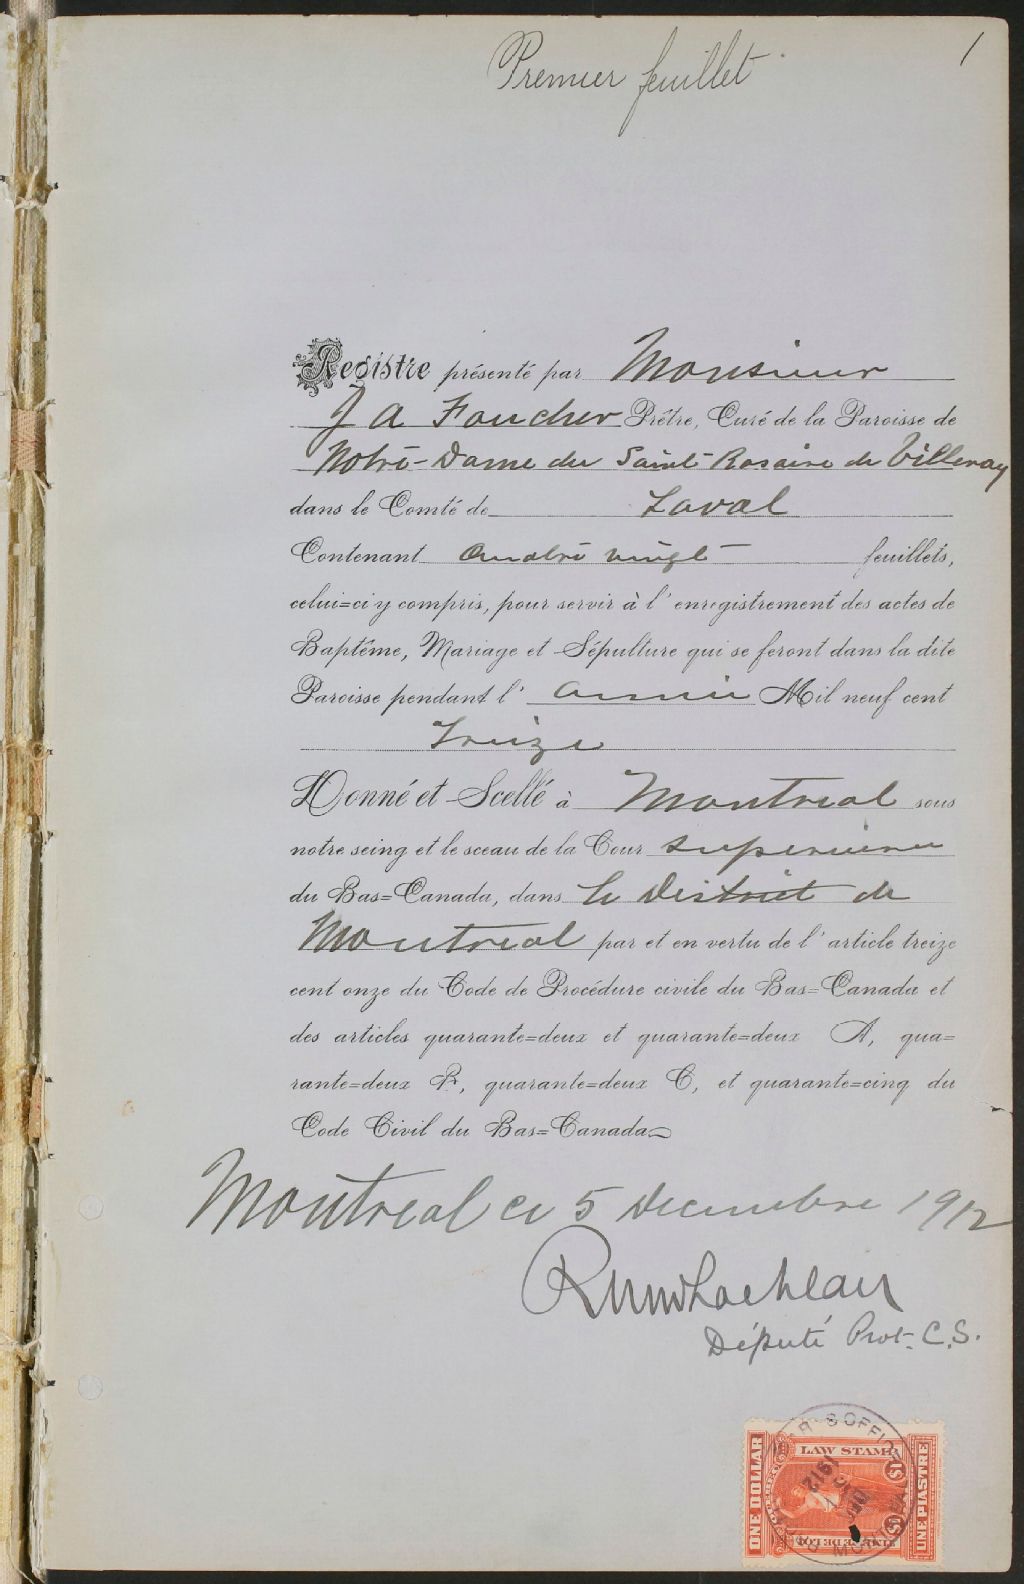 Premier feuillet
1
Registre présenté par Monsieur
J A Foucher Prêtre, Curé de la Paroisse de
Notre-Dame du Saint-Rosaire de Villeray
dans le Comté de Laval
Contenant Quatre vingt feuillets,
celui=ci y compris, pour servir à l'enregistrement des actes de
Baptême, Mariage et Sépulture qui se feront dans la dite
Paroisse pendant l' année Mil neuf cent
Treize
Donné et Scellé à Montreal sous
notre seing et le sceau de la Cour superieure
du Bas=Canada, dans le District de
Montreal par et en vertu de l'article treize
cent onze du Code de Procédure civile du Bas=Canada et
des articles quarante=deux et quarante=deux A, qua=
rante=deux B, quarante=deux C, et quarante=cinq du
Code Civil du Bas=Canada
Montreal ce 5 decembre 1912
Député Prot. C.S.
OFFICE
LAW STAMP
ONE DOLLAR
$1
1912
UNE PIASTRE